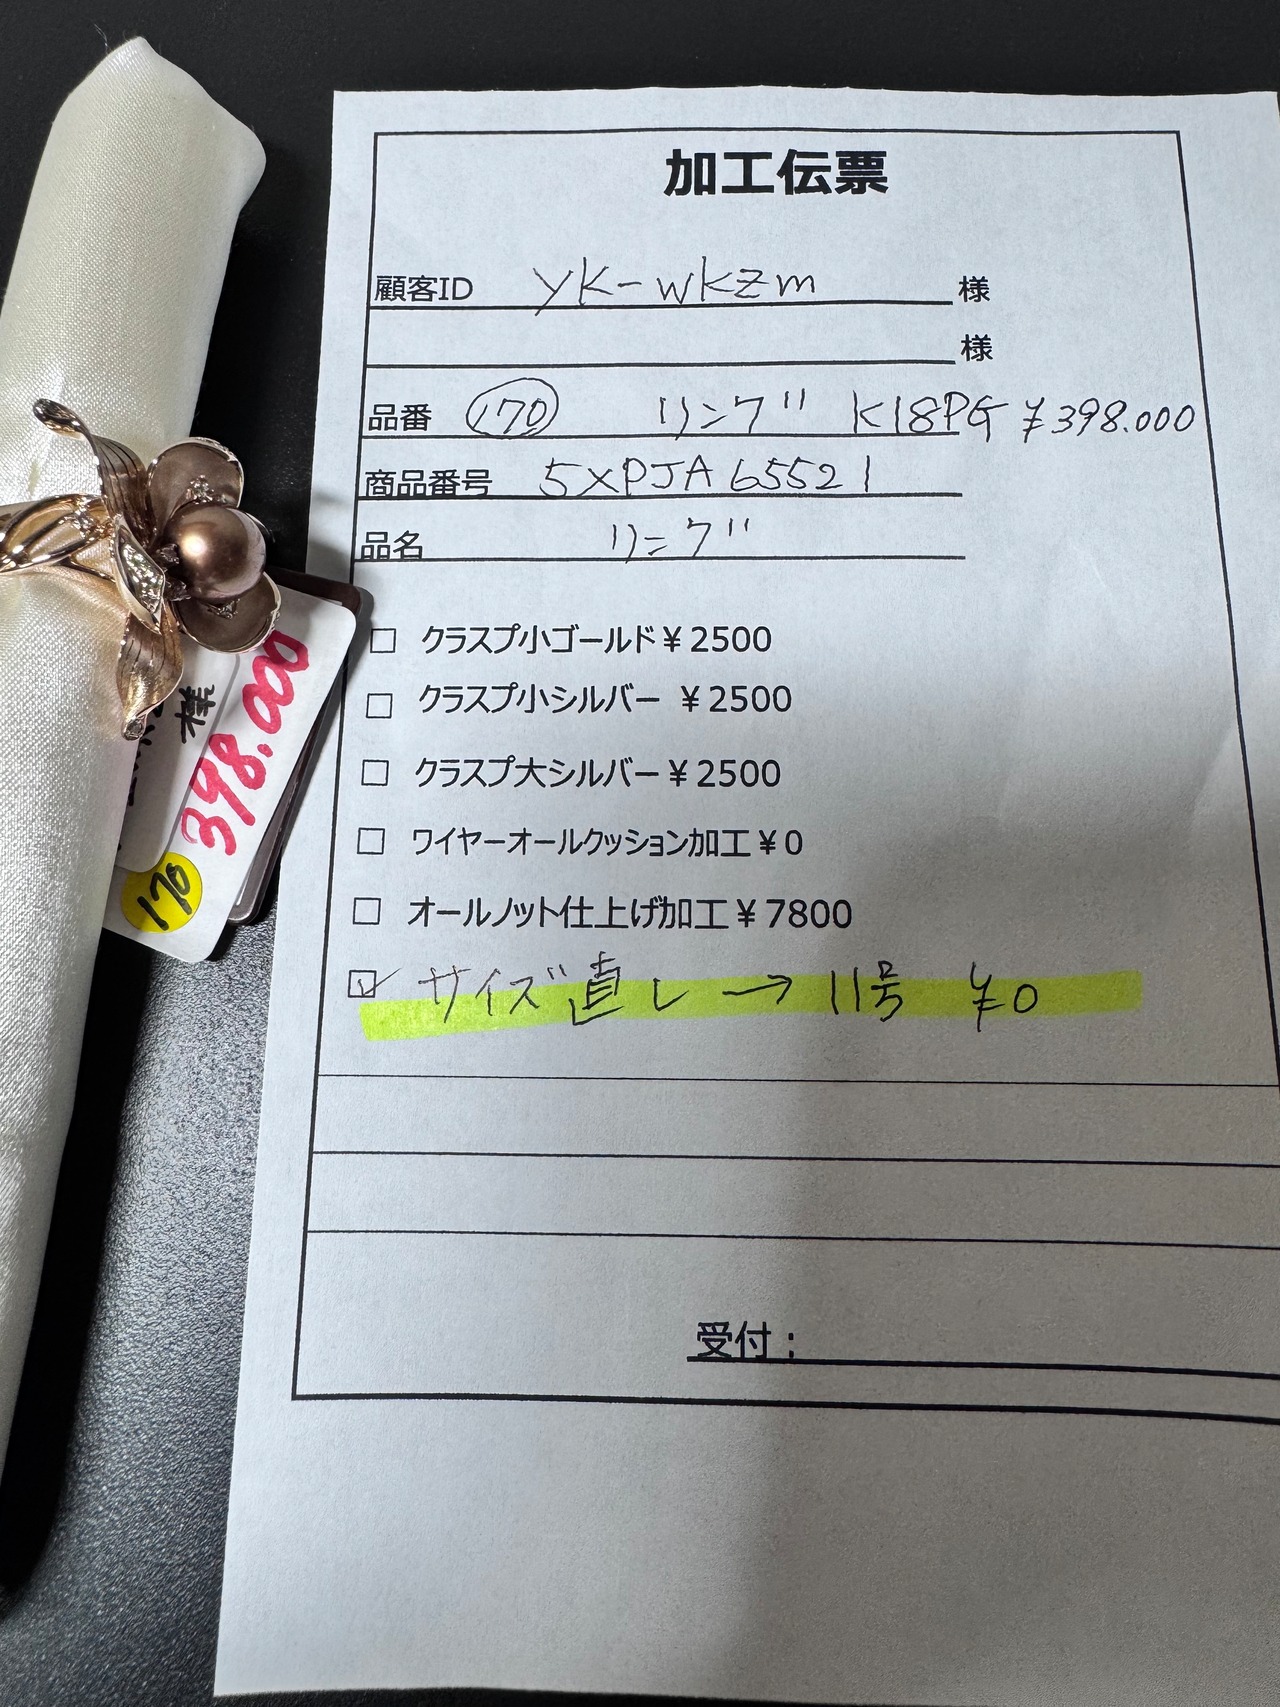 加工伝票
顧客ID yK-wkzm 様
様
品番 170 リング K18PG ¥398.000
商品番号 5XPJA65521
品名 リング
□ クラスプ小ゴールド¥2500
□ クラスプ小シルバー ¥2500
□ クラスプ大シルバー¥2500
□ ワイヤーオールクッション加工¥0
□ オールノット仕上げ加工¥7800
☑ サイズ直し→11号 ¥0
受付:
様
398.000
170